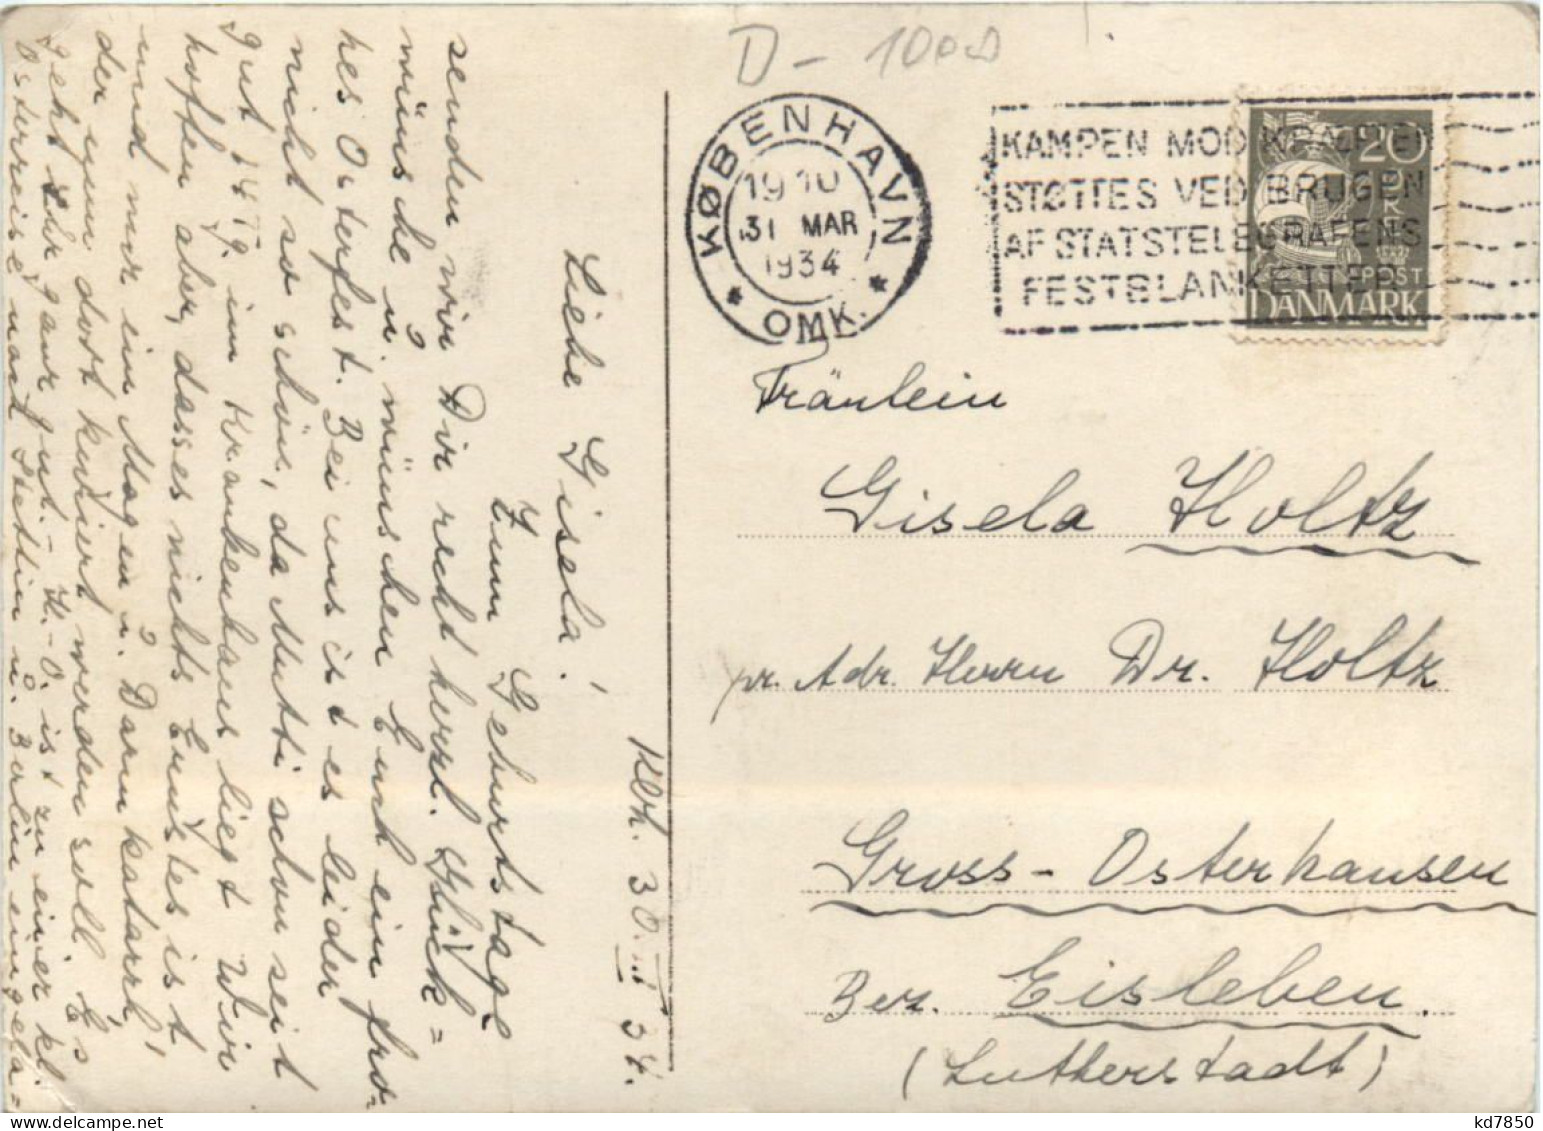 D - 1000
KØBENHAVN
19 10
31 MAR
1934
* OMK. *
KAMPEN MOD KRÆFTEN
STØTTES VED BRUGEN
AF STATSTELEGRAFENS
FESTBLANKETTER
20
POST
DANMARK
Fräulein
Gisela Holtz
pr. Adr. Herrn Dr. Holtz
Gross-Osterhausen
Bez. Eisleben.
(Lutherstadt)
Kbh. 30. III 34.
Liebe Gisela!
Zum Geburtstage
senden wir Dir recht herzl. Glück=
wünsche u. wünschen Euch ein fro-
hes Osterfest. Bei uns ist es leider
nicht so schön, da Mutti schon seit
gut 14 Tg. im Krankenhaus liegt. Wir
hoffen aber, dass es nichts Ernstes ist
und nur ein Magen u. Darmkatarrh,
der nun dort kuriert werden soll. Es
geht ihr ganz gut. - H.-O. ist zu einer kl.
Osterreise nach Stettin u. Berlin eingela=
kd7850